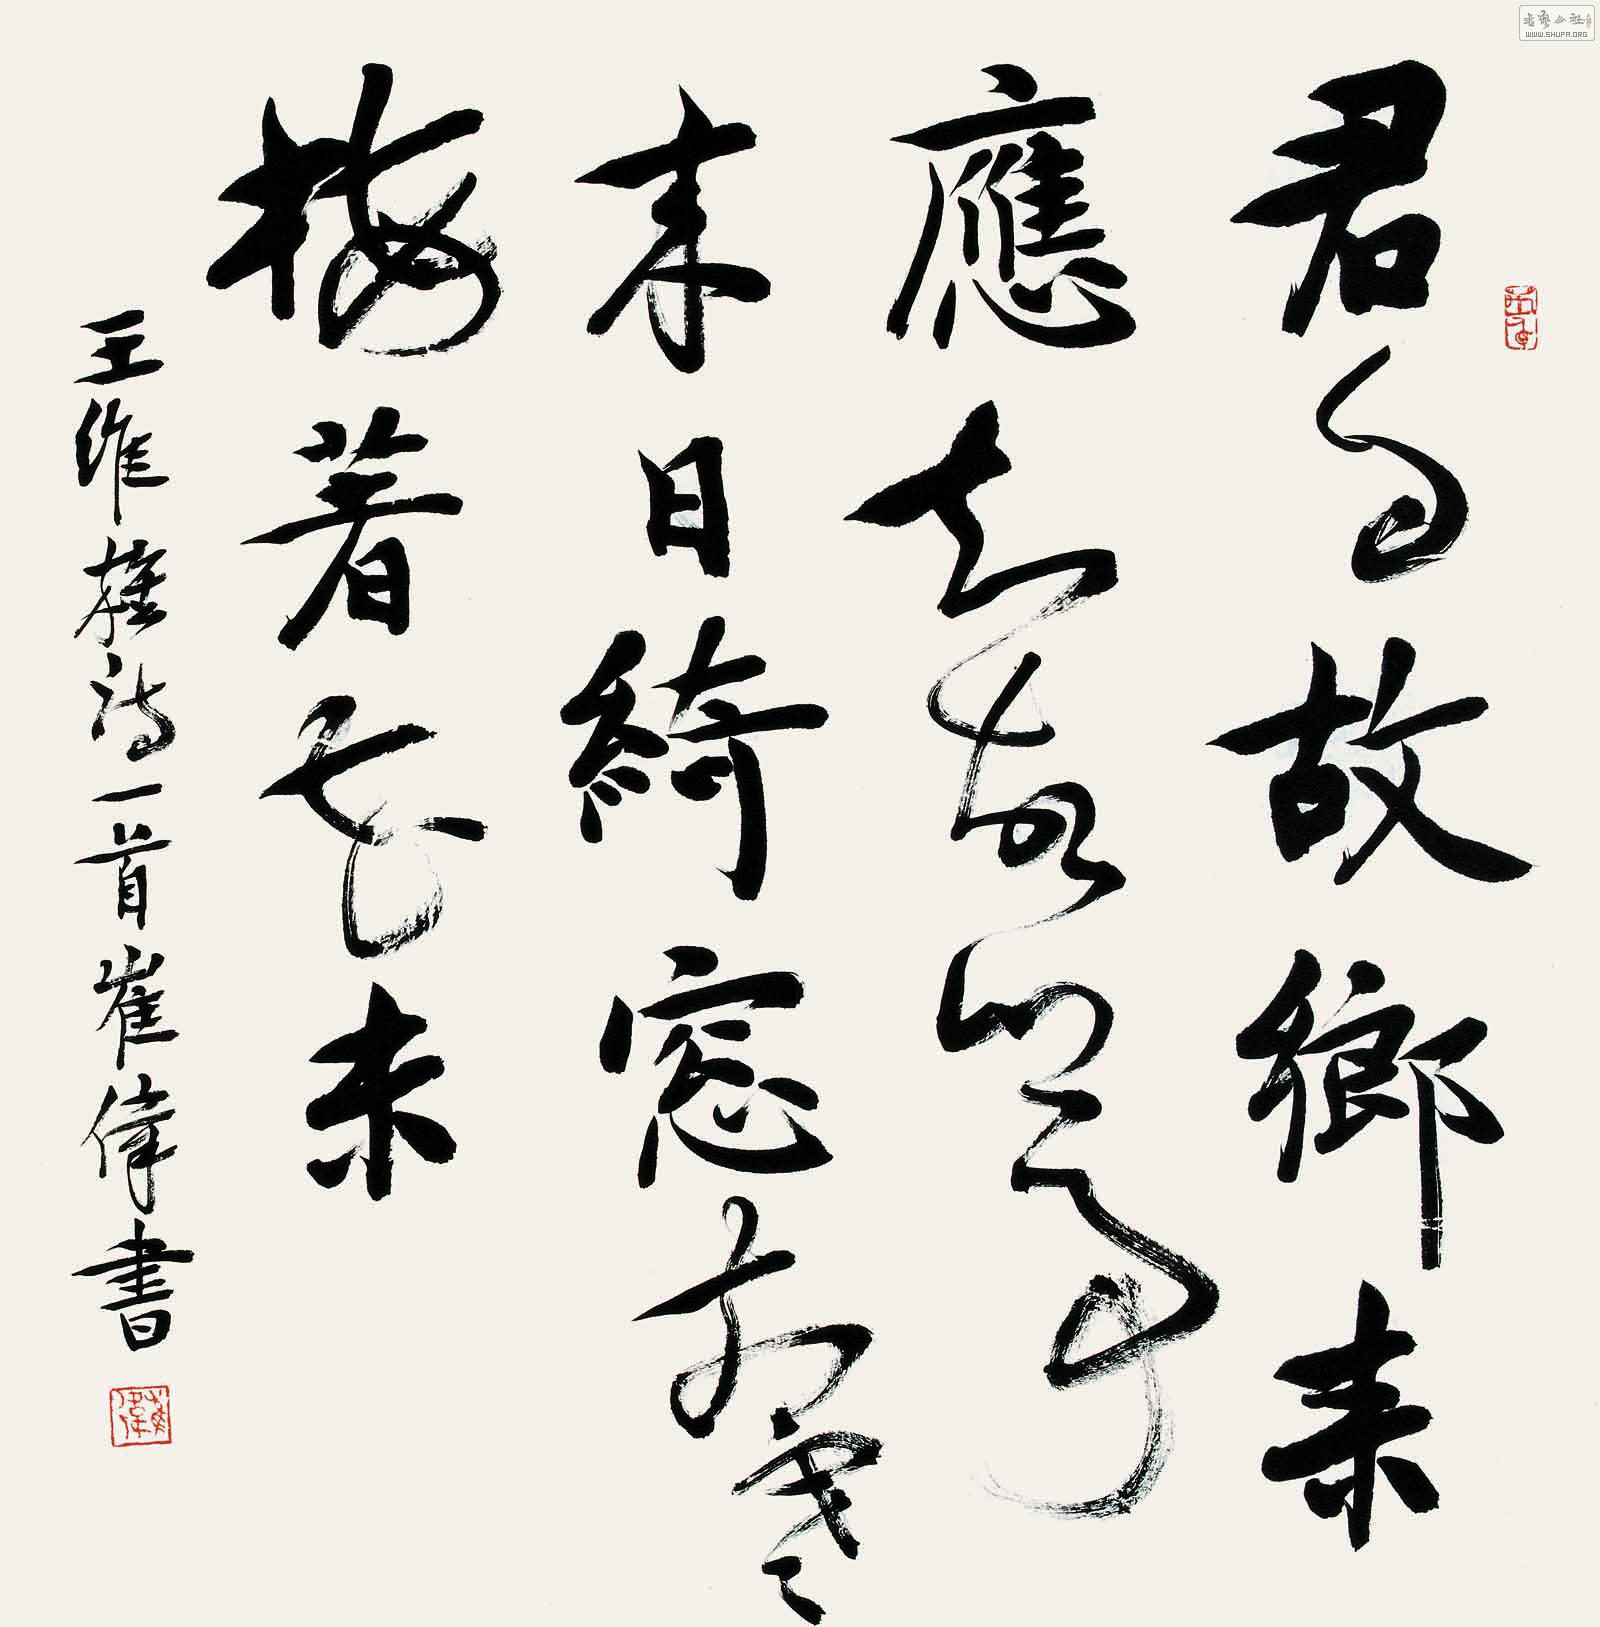 君自故鄉来
應知故鄉事
来日綺窓前寒
梅著花未
王維雜詩一首崔偉書
崔偉
書藝公社
WWW.SHUFA.ORG